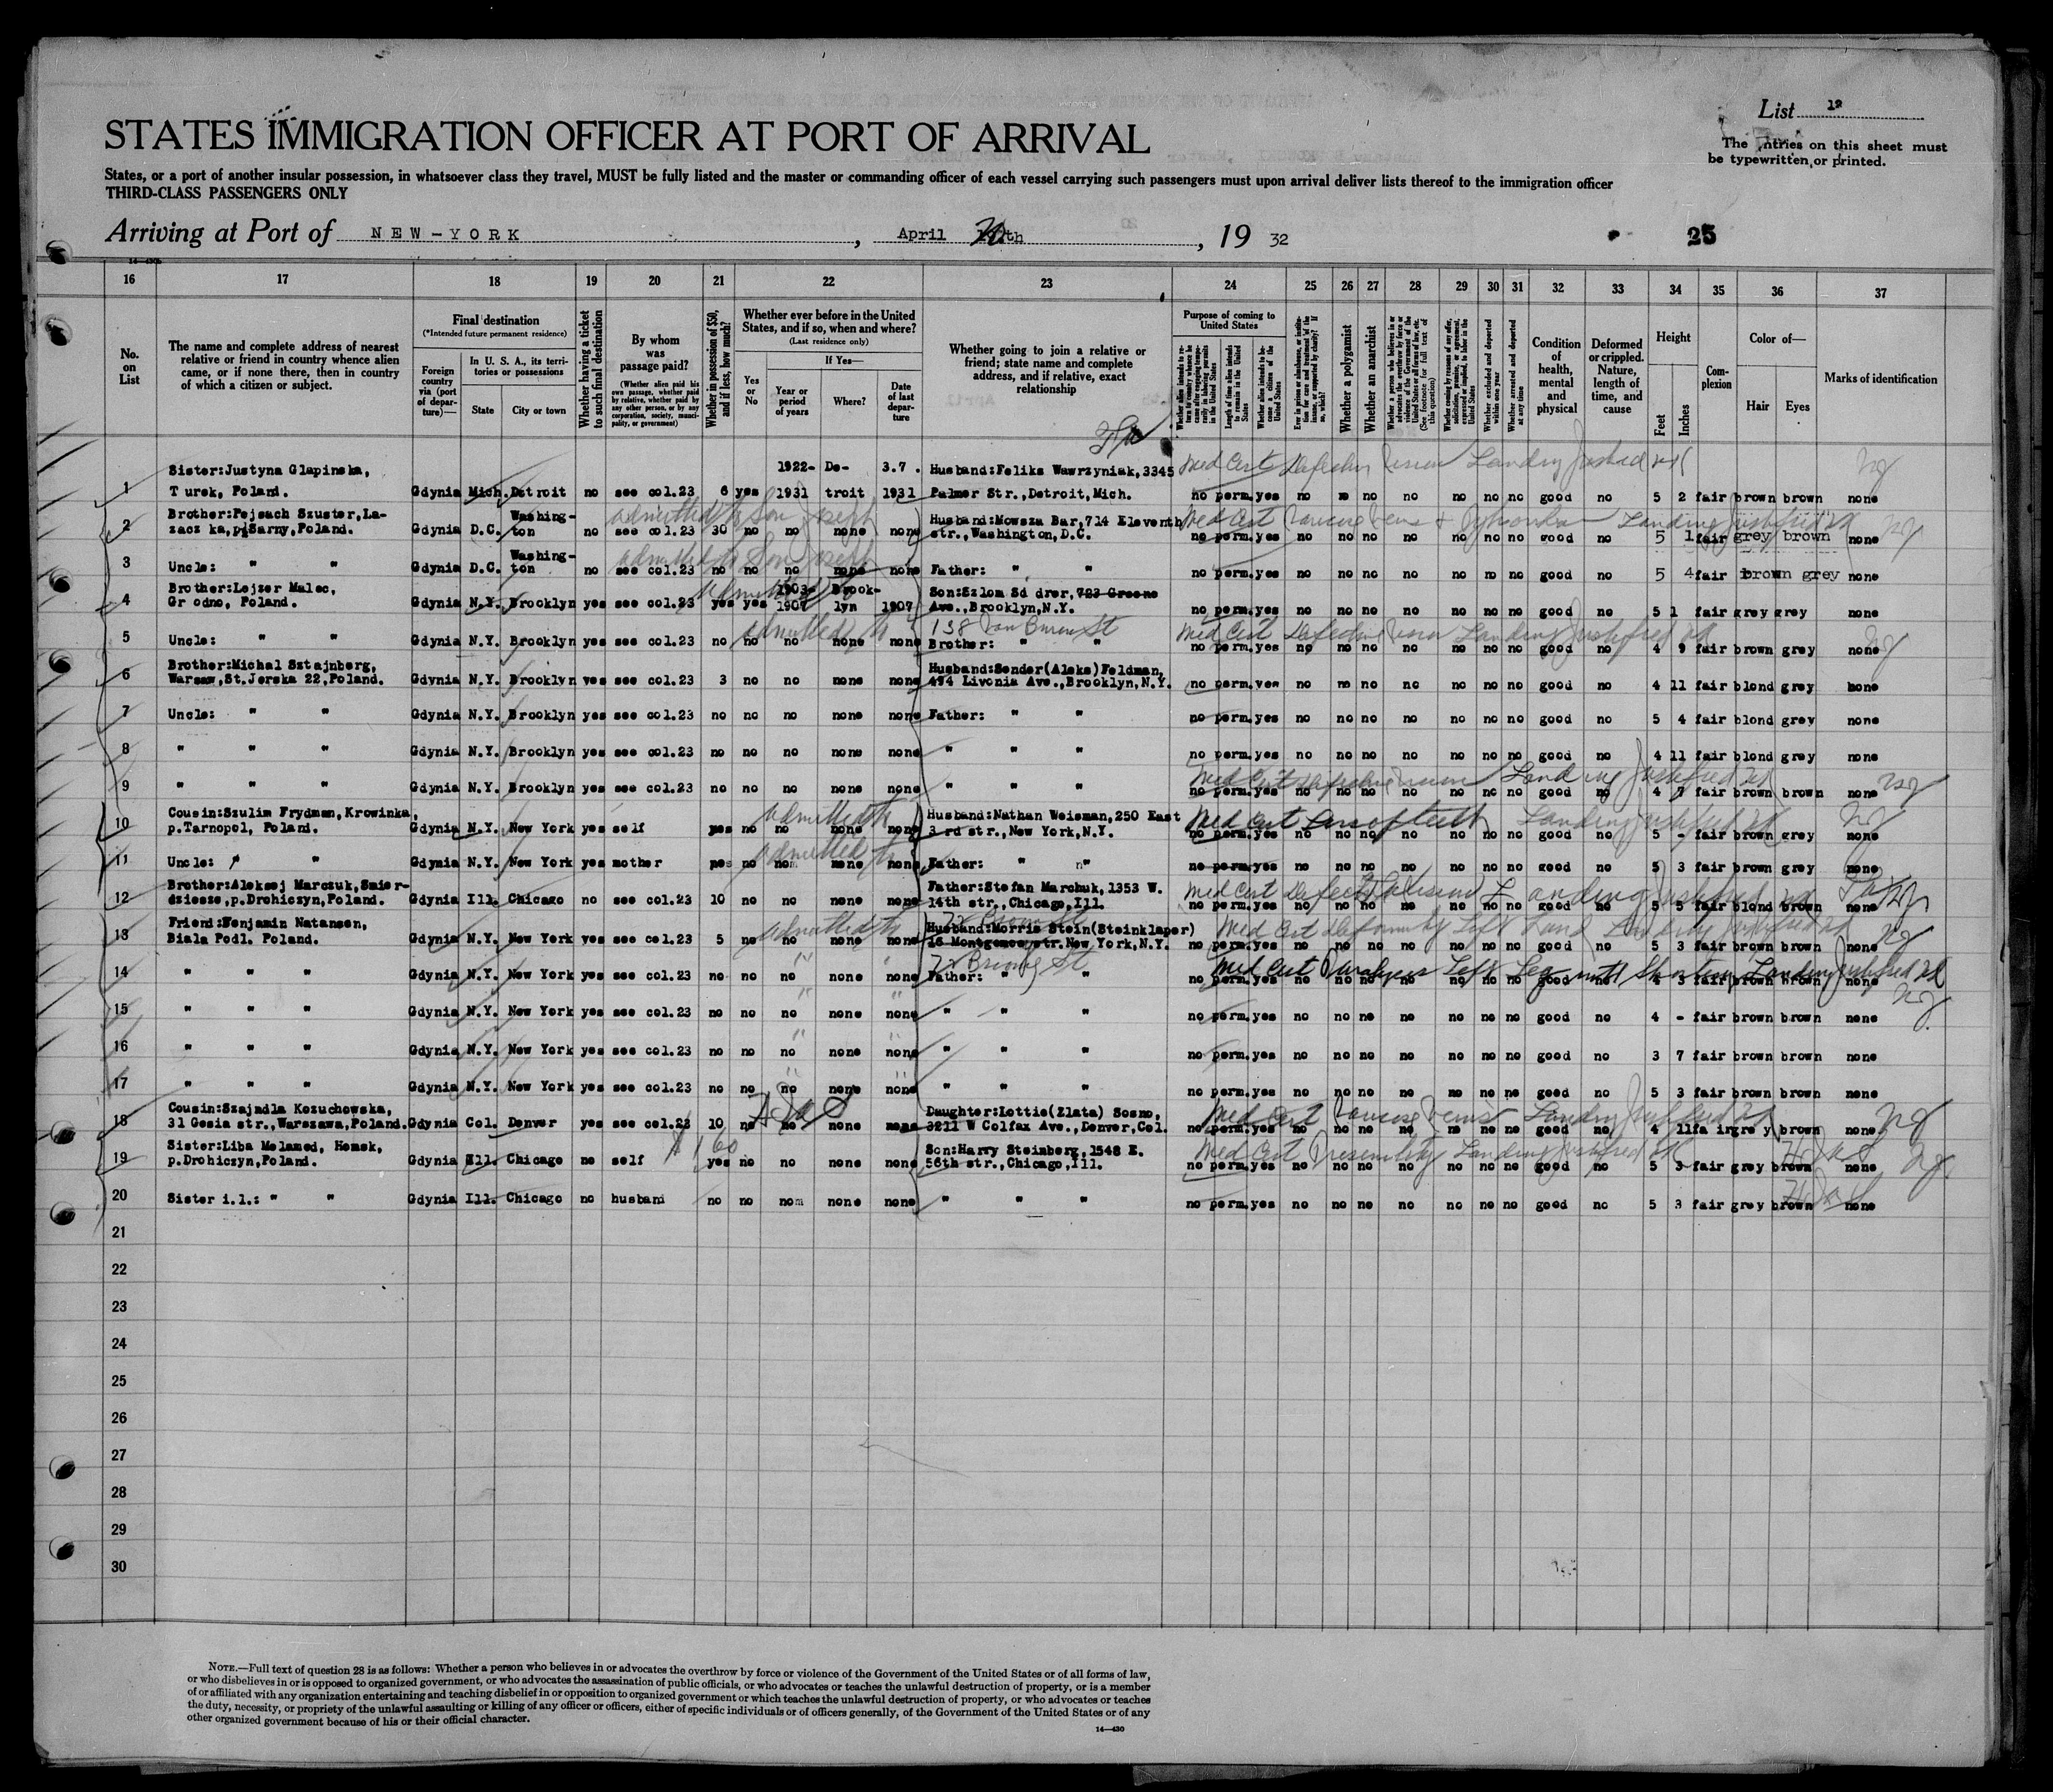 List 12
STATES IMMIGRATION OFFICER AT PORT OF ARRIVAL
The entries on this sheet must
be typewritten or printed.
States, or a port of another insular possession, in whatsoever class they travel, MUST be fully listed and the master or commanding officer of each vessel carrying such passengers must upon arrival deliver lists thereof to the immigration officer
THIRD-CLASS PASSENGERS ONLY
Arriving at Port of NEW-YORK, April th, 19 32
25
16 17 18 19 20 21 22 23 24 25 26 27 28 29 30 31 32 33 34 35 36 37
No. on List
The name and complete address of nearest relative or friend in country whence alien came, or if none there, then in country of which a citizen or subject.
Final destination
(*Intended future permanent residence)
Foreign country via (port of departure)—
In U. S. A., its territories or possessions
State
City or town
Whether having a ticket to such final destination
By whom was passage paid?
(Whether alien paid his own passage, whether paid by relative, whether paid by any other person, or by any corporation, society, municipality, or government)
Whether in possession of $50, and if less, how much?
Whether ever before in the United States, and if so, when and where?
(Last residence only)
Yes or No
If Yes—
Year or period of years
Where?
Date of last departure
Whether going to join a relative or friend; state name and complete address, and if relative, exact relationship
Purpose of coming to United States
Length of time alien intends to remain in the United States
Whether alien intends to become a citizen of the United States
Whether a polygamist
Whether an anarchist
(See footnote for full text of this question)
Whether excluded and deported within one year
Whether arrested and deported at any time
Condition of health, mental and physical
Deformed or crippled. Nature, length of time, and cause
Height
Feet
Inches
Complexion
Color of—
Hair
Eyes
Marks of identification
Med Cert Defective Vision Landing Justified
1 Sister:Justyna Glapinska, Turek, Poland. Gdynia Mich. Detroit no see col.23 6 yes 1922-1931 Detroit 3.7.1931 Husband:Feliks Wawrzyniak,3345 Palmer Str.,Detroit,Mich. no perm. yes no no no no no no no good no 5 2 fair brown brown none
admitted to Son Joseph
2 Brother:Pejsach Szuster, Gdynia D.C. Washington no see col.23 30 no no none none Husband:Mowsza Bar,714 Eleventh str.,Washington,D.C. no perm. yes no no no no no no no good no 5 1 fair grey brown none
admitted to Son Joseph
3 Uncle: " " Gdynia D.C. Washington no see col.23 no no no none none Father: " " no perm. yes no no no no no no no good no 5 4 fair brown grey none
4 Brother:Lejzer Malec, Grodno, Poland. Gdynia N.Y. Brooklyn yes see col.23 yes yes 1903-1907 Brooklyn 1907 Son:Szlom 723 Greene Ave.,Brooklyn,N.Y. no perm. yes no no no no no no no good no 5 1 fair grey grey none
138 Van Buren St
Med Cert Defective Vision Landing Justified
5 Uncle: " " Gdynia N.Y. Brooklyn yes see col.23 no no no none none Brother: " " no perm. yes no no no no no no no good no 4 9 fair brown grey none
6 Brother:Michal Sztajnberg, Warsaw,St.Jerska 22,Poland. Gdynia N.Y. Brooklyn yes see col.23 3 no no none none Husband:Sender(Aleks)Feldman, 494 Livonia Ave.,Brooklyn,N.Y. no perm. yes no no no no no no no good no 4 11 fair blond grey none
7 Uncle: " " Gdynia N.Y. Brooklyn yes see col.23 no no no none none Father: " " no perm. yes no no no no no no no good no 5 4 fair blond grey none
8 " " " Gdynia N.Y. Brooklyn yes see col.23 no no no none none " " " no perm. yes no no no no no no no good no 4 11 fair blond grey none
9 " " " Gdynia N.Y. Brooklyn yes see col.23 no no no none none " " " no perm. yes no no no no no no no good no 4 7 fair brown brown none
Med Cert Loss of teeth Landing Justified
10 Cousin:Szulim Frydman,Krowinka, p.Tarnopol, Poland. Gdynia N.Y. New York yes self yes no no none none Husband:Nathan Weisman,250 East 3 rd str.,New York,N.Y. no perm. yes no no no no no no no good no 5 - fair brown grey none
11 Uncle: " " Gdynia N.Y. New York yes mother yes no no none none Father: " " no perm. yes no no no no no no no good no 5 3 fair brown grey none
12 Brother:Aleksej Marczuk,Smierdziesze,p.Drohiczyn,Poland. Gdynia Ill. Chicago no see col.23 10 no no none none Father:Stefan Marchuk,1353 W. 14th str.,Chicago,Ill. no perm. yes no no no no no no no good no 5 5 fair blond brown none
Med Cert Deformity Left Hand Landing Justified
13 Friend:Benjamin Natansen, Biala Podl. Poland. Gdynia N.Y. New York yes see col.23 5 no no none none Husband:Morris Stein(Steinklaper) 16 Montgomery str.New York,N.Y. no perm. yes no no no no no no no good no 5 3 fair brown brown none
Med Cert Paralysis Left Leg with Shortening Landing Justified
14 " " " Gdynia N.Y. New York yes see col.23 no no no none none Father: " " no perm. yes no no no no no no no good no 4 3 fair brown brown none
15 " " " Gdynia N.Y. New York yes see col.23 no no no none none " " " no perm. yes no no no no no no no good no 4 - fair brown brown none
16 " " " Gdynia N.Y. New York yes see col.23 no no no none none " " " no perm. yes no no no no no no no good no 3 7 fair brown brown none
17 " " " Gdynia N.Y. New York yes see col.23 no no no none none " " " no perm. yes no no no no no no no good no 5 3 fair brown brown none
Med Cert Varicose Veins Landing Justified
18 Cousin:Szajndla Kozuchowska, 31 Gesia str.,Warszawa,Poland. Gdynia Col. Denver yes see col.23 10 no no none none Daughter:Lottie(Zlata) Sosno, 3211 W Colfax Ave.,Denver,Col. no perm. yes no no no no no no no good no 4 11 fair grey brown none
$160
Med Cert Presenility Landing Justified
19 Sister:Liba Melamed, Homsk, p.Drohiczyn,Poland. Gdynia Ill. Chicago no self yes no no none none Son:Harry Steinberg,1548 E. 56th str.,Chicago,Ill. no perm. yes no no no no no no no good no 5 3 fair grey brown none
20 Sister i.l.: " " Gdynia Ill. Chicago no husband no no no none none " " " no perm. yes no no no no no no no good no 5 3 fair grey brown none
21
22
23
24
25
26
27
28
29
30
NOTE.—Full text of question 28 is as follows: Whether a person who believes in or advocates the overthrow by force or violence of the Government of the United States or of all forms of law,
or who disbelieves in or is opposed to organized government, or who advocates the assassination of public officials, or who advocates or teaches the unlawful destruction of property, or is a member
of or affiliated with any organization entertaining and teaching disbelief in or opposition to organized government or which teaches the unlawful destruction of property, or who advocates or teaches
the duty, necessity, or propriety of the unlawful assaulting or killing of any officer or officers, either of specific individuals or of officers generally, of the Government of the United States or of any
other organized government because of his or their official character.
14—430